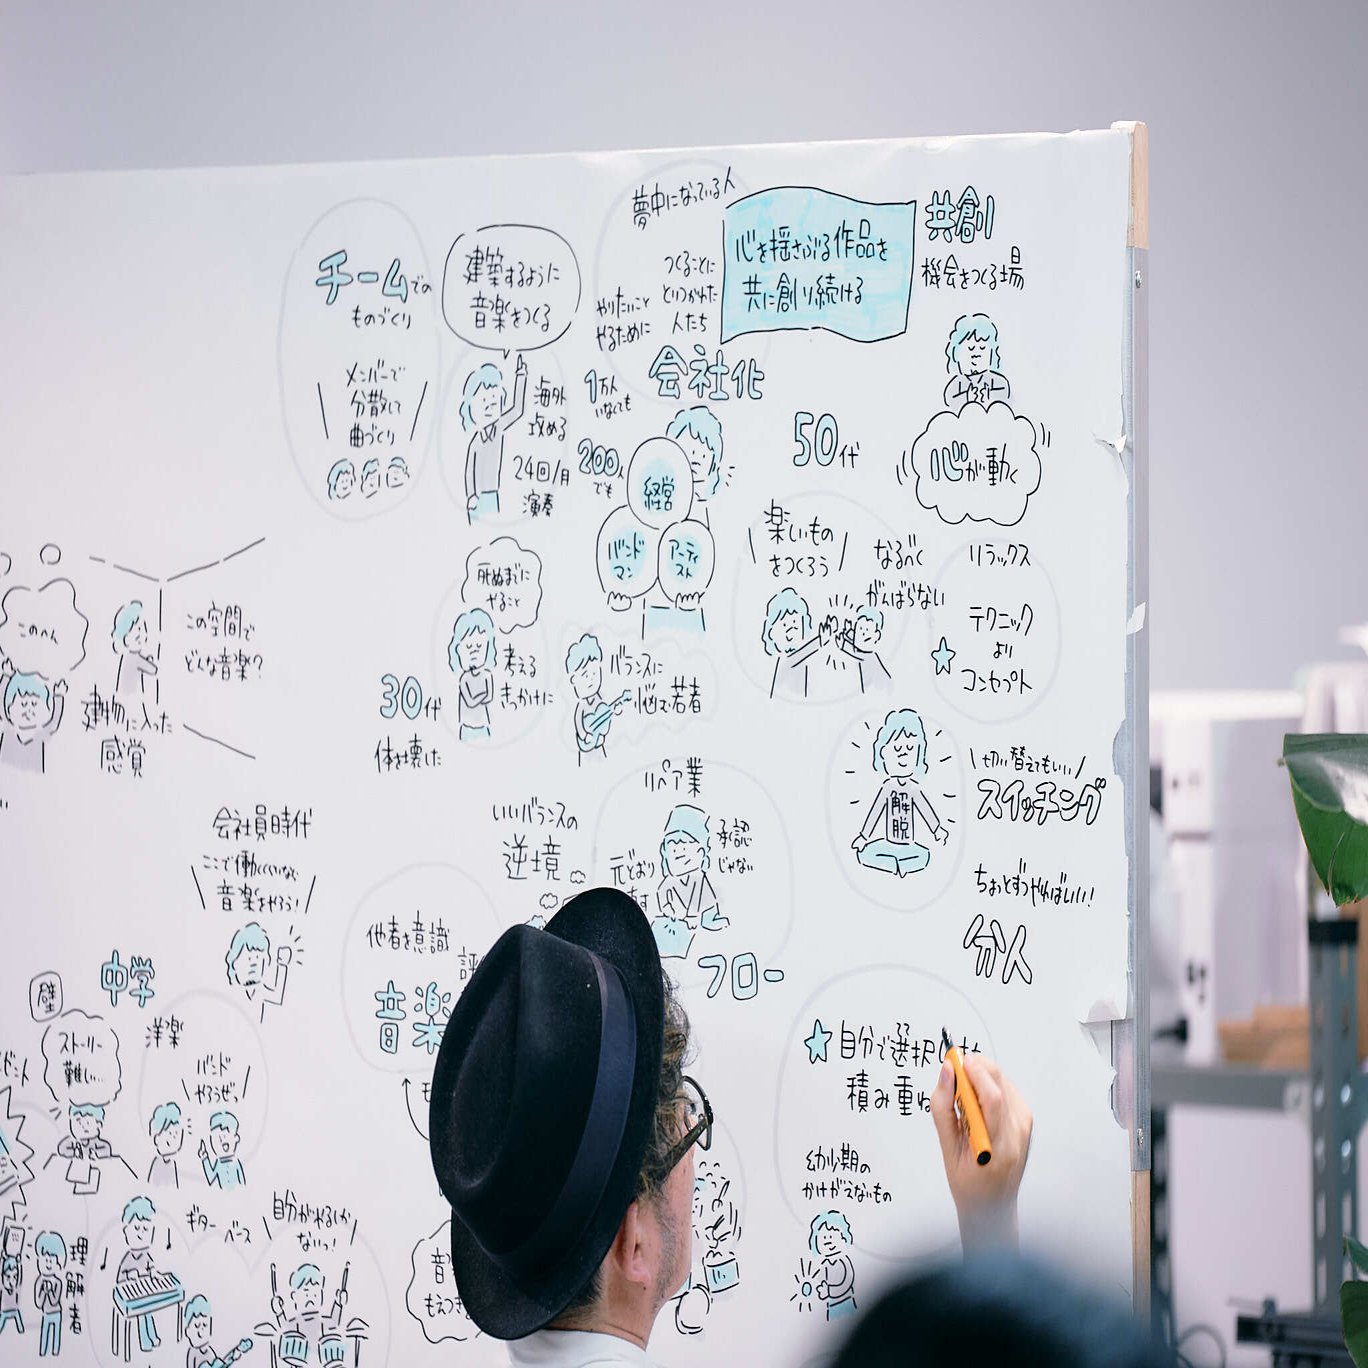 チームでの
ものづくり
メンバーで
分散して
曲づくり
建築するように
音楽をつくる
海外
攻める
24回/月
演奏
夢中になっている人
つくることに
とりつかれた
人たち
やりたいこと
やるために
会社化
1万人
いなくても
200人
でも
経営
バンド
マン
アーティ
スト
心を揺さぶる作品を
共に創り続ける
共創
機会をつくる場
心が動く
50代
楽しいもの
をつくろう
なるべく
がんばらない
リラックス
テクニック
より
コンセプト
死ぬまでに
やること
考える
きっかけに
30代
体を壊した
バランスに
悩む若者
このへん
建物に入った
感覚
この空間で
どんな音楽?
解脱
切り替えてもいい
スイッチング
ちょっとずつやればいい!
分人
リペア業
承認
じゃない
元どおり
フロー
いいバランスの
逆境
会社員時代
ここで働くくらいなら
音楽をやろう!
他者を意識
音楽
中学
壁
ストーリー
難しい…
洋楽
バンド
やろうぜっ
理解者
ギター
ベース
自分がやるしか
ないっ!
自分で選択
積み重ね
幼少期の
かけがえないもの